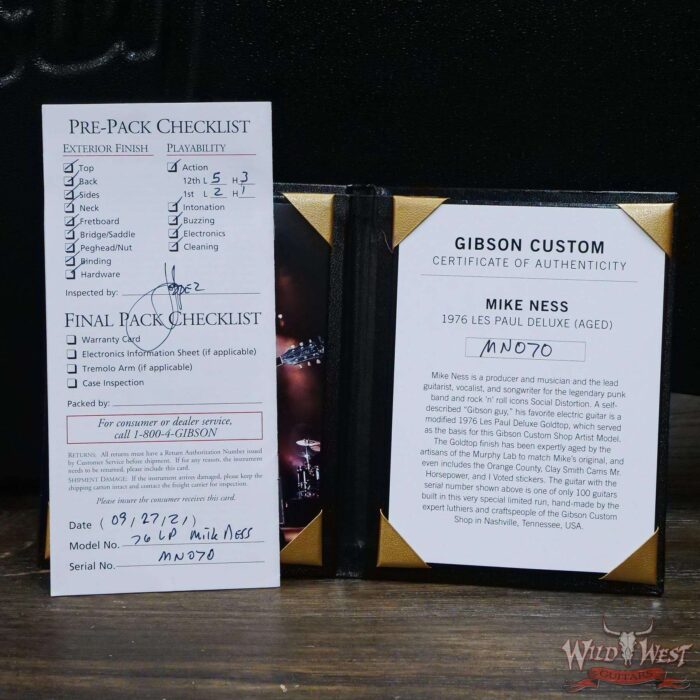 PRE-PACK CHECKLIST
EXTERIOR FINISH
Top
Back
Sides
Neck
Fretboard
Bridge/Saddle
Peghead/Nut
Binding
Hardware
PLAYABILITY
Action
12th L 5 H 3
1st L 2 H 1
Intonation
Buzzing
Electronics
Cleaning
Inspected by:
FINAL PACK CHECKLIST
Warranty Card
Electronics Information Sheet (if applicable)
Tremolo Arm (if applicable)
Case Inspection
Packed by:
For consumer or dealer service,
call 1-800-4-GIBSON
RETURNS: All returns must have a Return Authorization Number issued
by Customer Service before shipment. If for any reason, the instrument
needs to be returned, please include this card.
SHIPMENT DAMAGE: If the instrument arrives damaged, please keep the
shipping carton intact and contact the freight carrier for inspection.
Please insure the consumer receives this card.
Date (09/27/21)
Model No. 76 LP Mike Ness
Serial No. MN070
GIBSON CUSTOM
CERTIFICATE OF AUTHENTICITY
MIKE NESS
1976 LES PAUL DELUXE (AGED)
MN070
Mike Ness is a producer and musician and the lead
guitarist, vocalist, and songwriter for the legendary punk
band and rock 'n' roll icons Social Distortion. A self-
described "Gibson guy," his favorite electric guitar is a
modified 1976 Les Paul Deluxe Goldtop, which served
as the basis for this Gibson Custom Shop Artist Model.
The Goldtop finish has been expertly aged by the
artisans of the Murphy Lab to match Mike's original, and
even includes the Orange County, Clay Smith Cams Mr.
Horsepower, and I Voted stickers. The guitar with the
serial number shown above is one of only 100 guitars
built in this very special limited run, hand-made by the
expert luthiers and craftspeople of the Gibson Custom
Shop in Nashville, Tennessee, USA.
WILD WEST
GUITARS